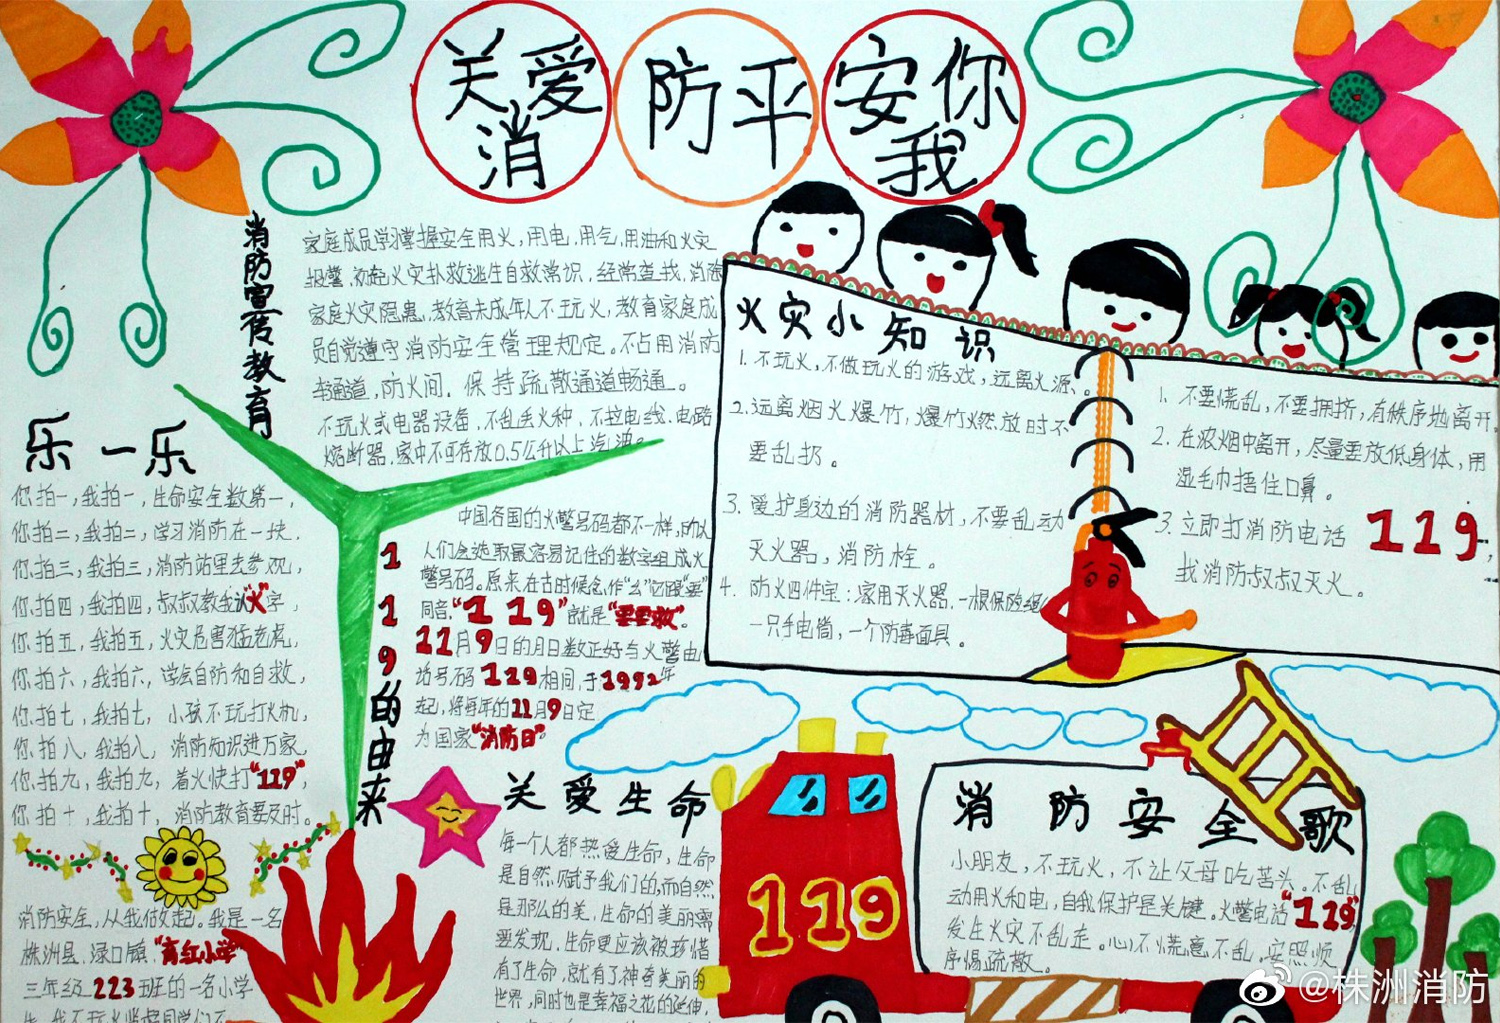 关爱
消
防平
安你
我
消防宣传教育
家庭成员学习掌握安全用火,用电,用气,用油和火灾
报警,初起火灾扑救逃生自救常识,经常查找,消除
家庭火灾隐患,教育未成年人不玩火,教育家庭成
员自觉遵守消防安全管理规定。不占用消防
车通道,防火间.保持疏散通道畅通。
不玩火或电器设备,不乱丢火种,不拉电线.电路
熔断器,家中不可存放0.5公升以上汽油。
乐一乐
你拍一,我拍一,生命安全数第一,
你拍二,我拍二,学习消防在一块,
你拍三,我拍三,消防站里去参观,
你拍四,我拍四,叔叔教我认"火"字,
你拍五,我拍五,火灾危害猛老虎,
你拍六,我拍六,学会自防和自救,
你拍七,我拍七,小孩不玩打火机,
你拍八,我拍八,消防知识进万家,
你拍九,我拍九,着火快打"119",
你拍十,我拍十,消防教育要及时。
119的由来
中国各国的火警号码都不一样,
人们会选取最容易记住的数字组成火
警号码。原来在古时候念作"幺"
同音."119"就是"要要救"。
11月9日的月日数正好与火警电
话号码119相同,于1992年
起,将每年的11月9日定
为国家"消防日"
火灾小知识
1.不玩火,不做玩火的游戏,远离火源。
2.远离烟火爆竹,爆竹燃放时不
要乱扔。
3.爱护身边的消防器材,不要乱动
灭火器,消防栓。
4.防火四件宝:家用灭火器.一根保险绳
一只手电筒,一个防毒面具。
1.不要慌乱,不要拥挤,有秩序地离开.
2.在浓烟中离开,尽量要放低身体,用
湿毛巾捂住口鼻。
3.立即打消防电话119,
找消防叔叔灭火。
关爱生命
每一个人都热爱生命,生命
是自然赋予我们的,而自然
是那么的美,生命的美丽需
要发现,生命更应该被珍惜
有了生命,就有了神奇美丽的
世界,同时也是幸福之花的延伸,
119
消防安全歌
小朋友,不玩火,不让父母吃苦头。不乱
动用火和电,自我保护是关键。火警电话"119"
发生火灾不乱走。心不慌意不乱,安照顺
序惕疏散。
消防安全,从我做起。我是一名
株洲县.渌口镇."育红小学"
三年级223班的一名小学
生,我不玩火
@株洲消防